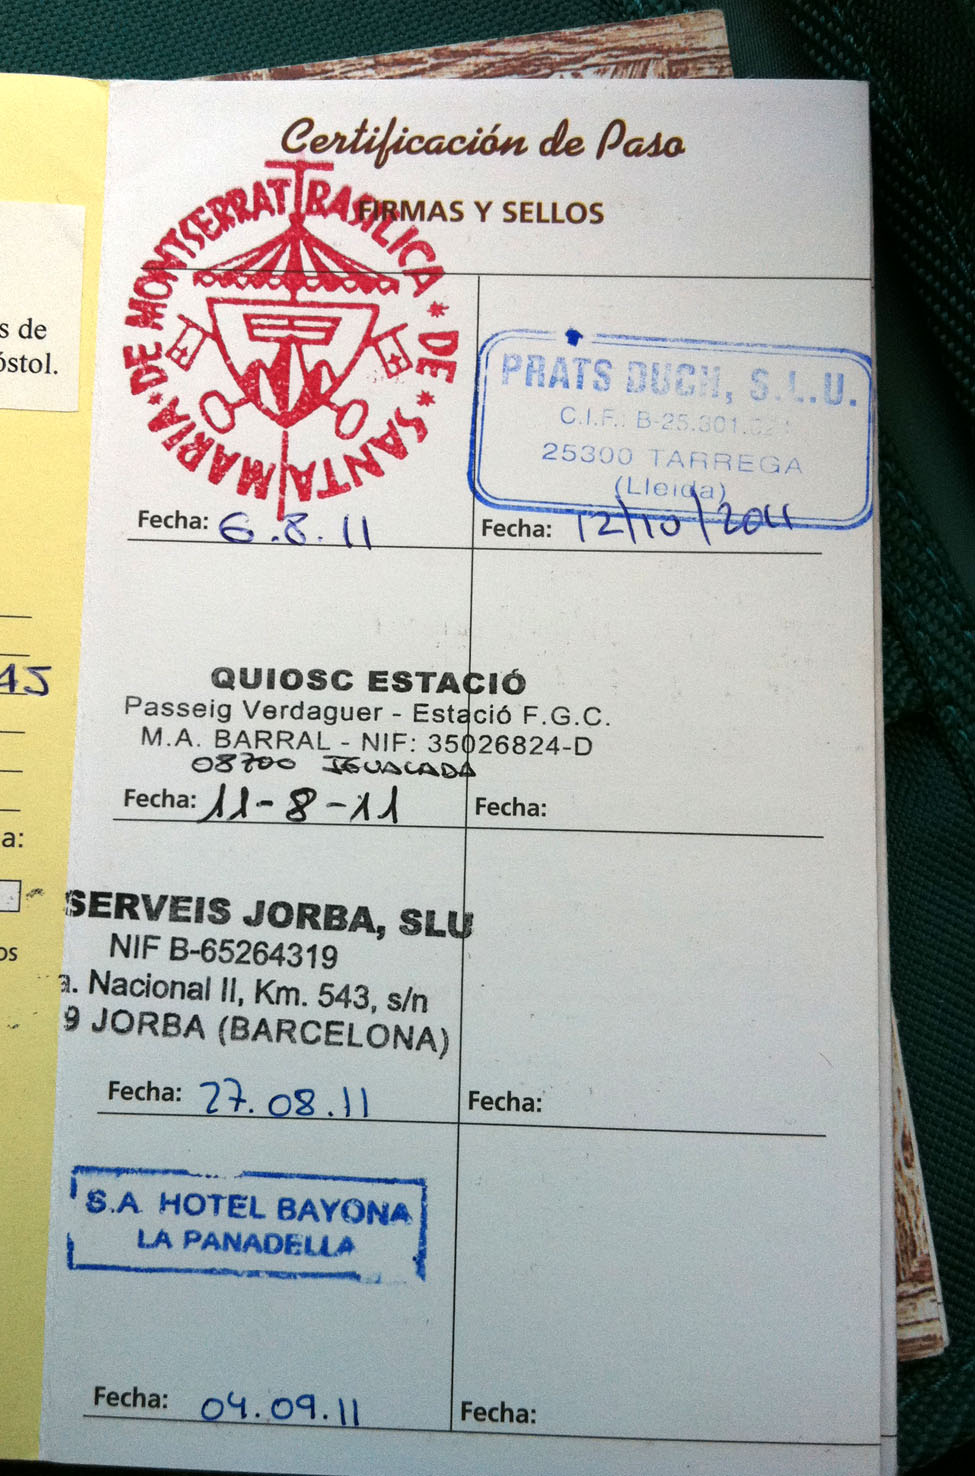 Certificación de Paso
FIRMAS Y SELLOS
BASILICA * DE * SANTA MARIA * DE MONTSERRAT
Fecha: 6.8.11
PRATS DUCH, S.L.U.
C.I.F.: B-25.301.
25300 TARREGA
(Lleida)
Fecha: 12/10/2011
QUIOSC ESTACIÓ
Passeig Verdaguer - Estació F.G.C.
M.A. BARRAL - NIF: 35026824-D
08700 IGUALADA
Fecha: 11-8-11
Fecha:
SERVEIS JORBA, SLU
NIF B-65264319
a. Nacional II, Km. 543, s/n
9 JORBA (BARCELONA)
Fecha: 27.08.11
Fecha:
S.A HOTEL BAYONA
LA PANADELLA
Fecha: 04.09.11
Fecha:
s de
óstol.
45
a:
os